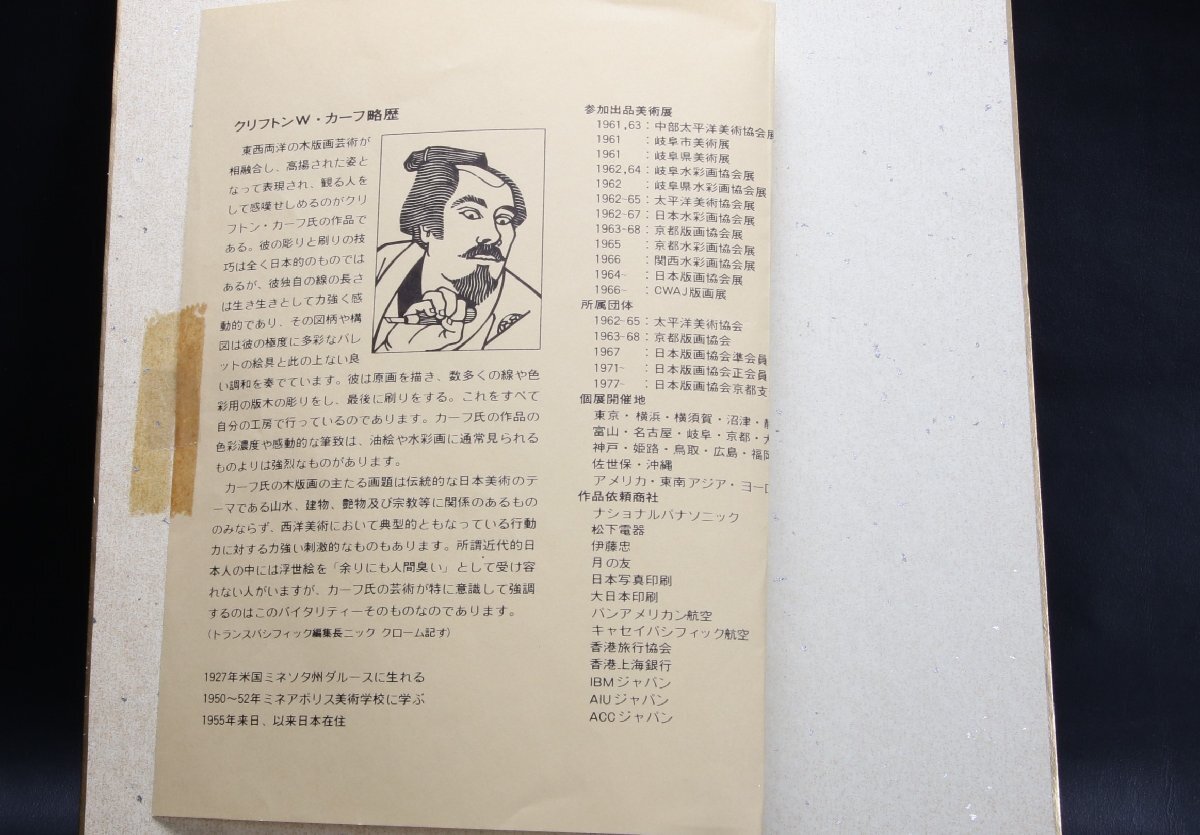 クリフトンW・カーフ略歴
東西両洋の木版画芸術が
相融合し、高揚された姿と
なって表現され、観る人を
して感嘆せしめるのがクリ
フトン・カーフ氏の作品で
ある。彼の彫りと刷りの技
巧は全く日本的のものでは
あるが、彼独自の線の長さ
は生き生きとして力強く感
動的であり、その図柄や構
図は彼の極度に多彩なパレ
ットの絵具と此の上ない良
い調和を奏でています。彼は原画を描き、数多くの線や色
彩用の版木の彫りをし、最後に刷りをする。これをすべて
自分の工房で行っているのであります。カーフ氏の作品の
色彩濃度や感動的な筆致は、油絵や水彩画に通常見られる
ものよりは強烈なものがあります。
カーフ氏の木版画の主たる画題は伝統的な日本美術のテ
ーマである山水、建物、艶物及び宗教等に関係のあるもの
のみならず、西洋美術において典型的ともなっている行動
力に対する力強い刺激的なものもあります。所謂近代的日
本人の中には浮世絵を「余りにも人間臭い」として受け容
れない人がいますが、カーフ氏の芸術が特に意識して強調
するのはこのバイタリティーそのものなのであります。
(トランスパシフィック編集長ニック クローム記す)
1927年米国ミネソタ州ダルースに生れる
1950〜52年ミネアポリス美術学校に学ぶ
1955年来日、以来日本在住
参加出品美術展
1961,63:中部太平洋美術協会展
1961 :岐阜市美術展
1961 :岐阜県美術展
1962,64:岐阜水彩画協会展
1962 :岐阜県水彩画協会展
1962-65:太平洋美術協会展
1962-67:日本水彩画協会展
1963-68:京都版画協会展
1965 :京都水彩画協会展
1966 :関西水彩画協会展
1964- :日本版画協会展
1966- :CWAJ版画展
所属団体
1962-65:太平洋美術協会
1963-68:京都版画協会
1967 :日本版画協会準会員
1971- :日本版画協会正会員
1977- :日本版画協会京都支
個展開催地
東京・横浜・横須賀・沼津・
富山・名古屋・岐阜・京都・
神戸・姫路・鳥取・広島・福岡
佐世保・沖縄
アメリカ・東南アジア・ヨーロ
作品依頼商社
ナショナルパナソニック
松下電器
伊藤忠
月の友
日本写真印刷
大日本印刷
パンアメリカン航空
キャセイパシフィック航空
香港旅行協会
香港上海銀行
IBMジャパン
AIUジャパン
ACCジャパン